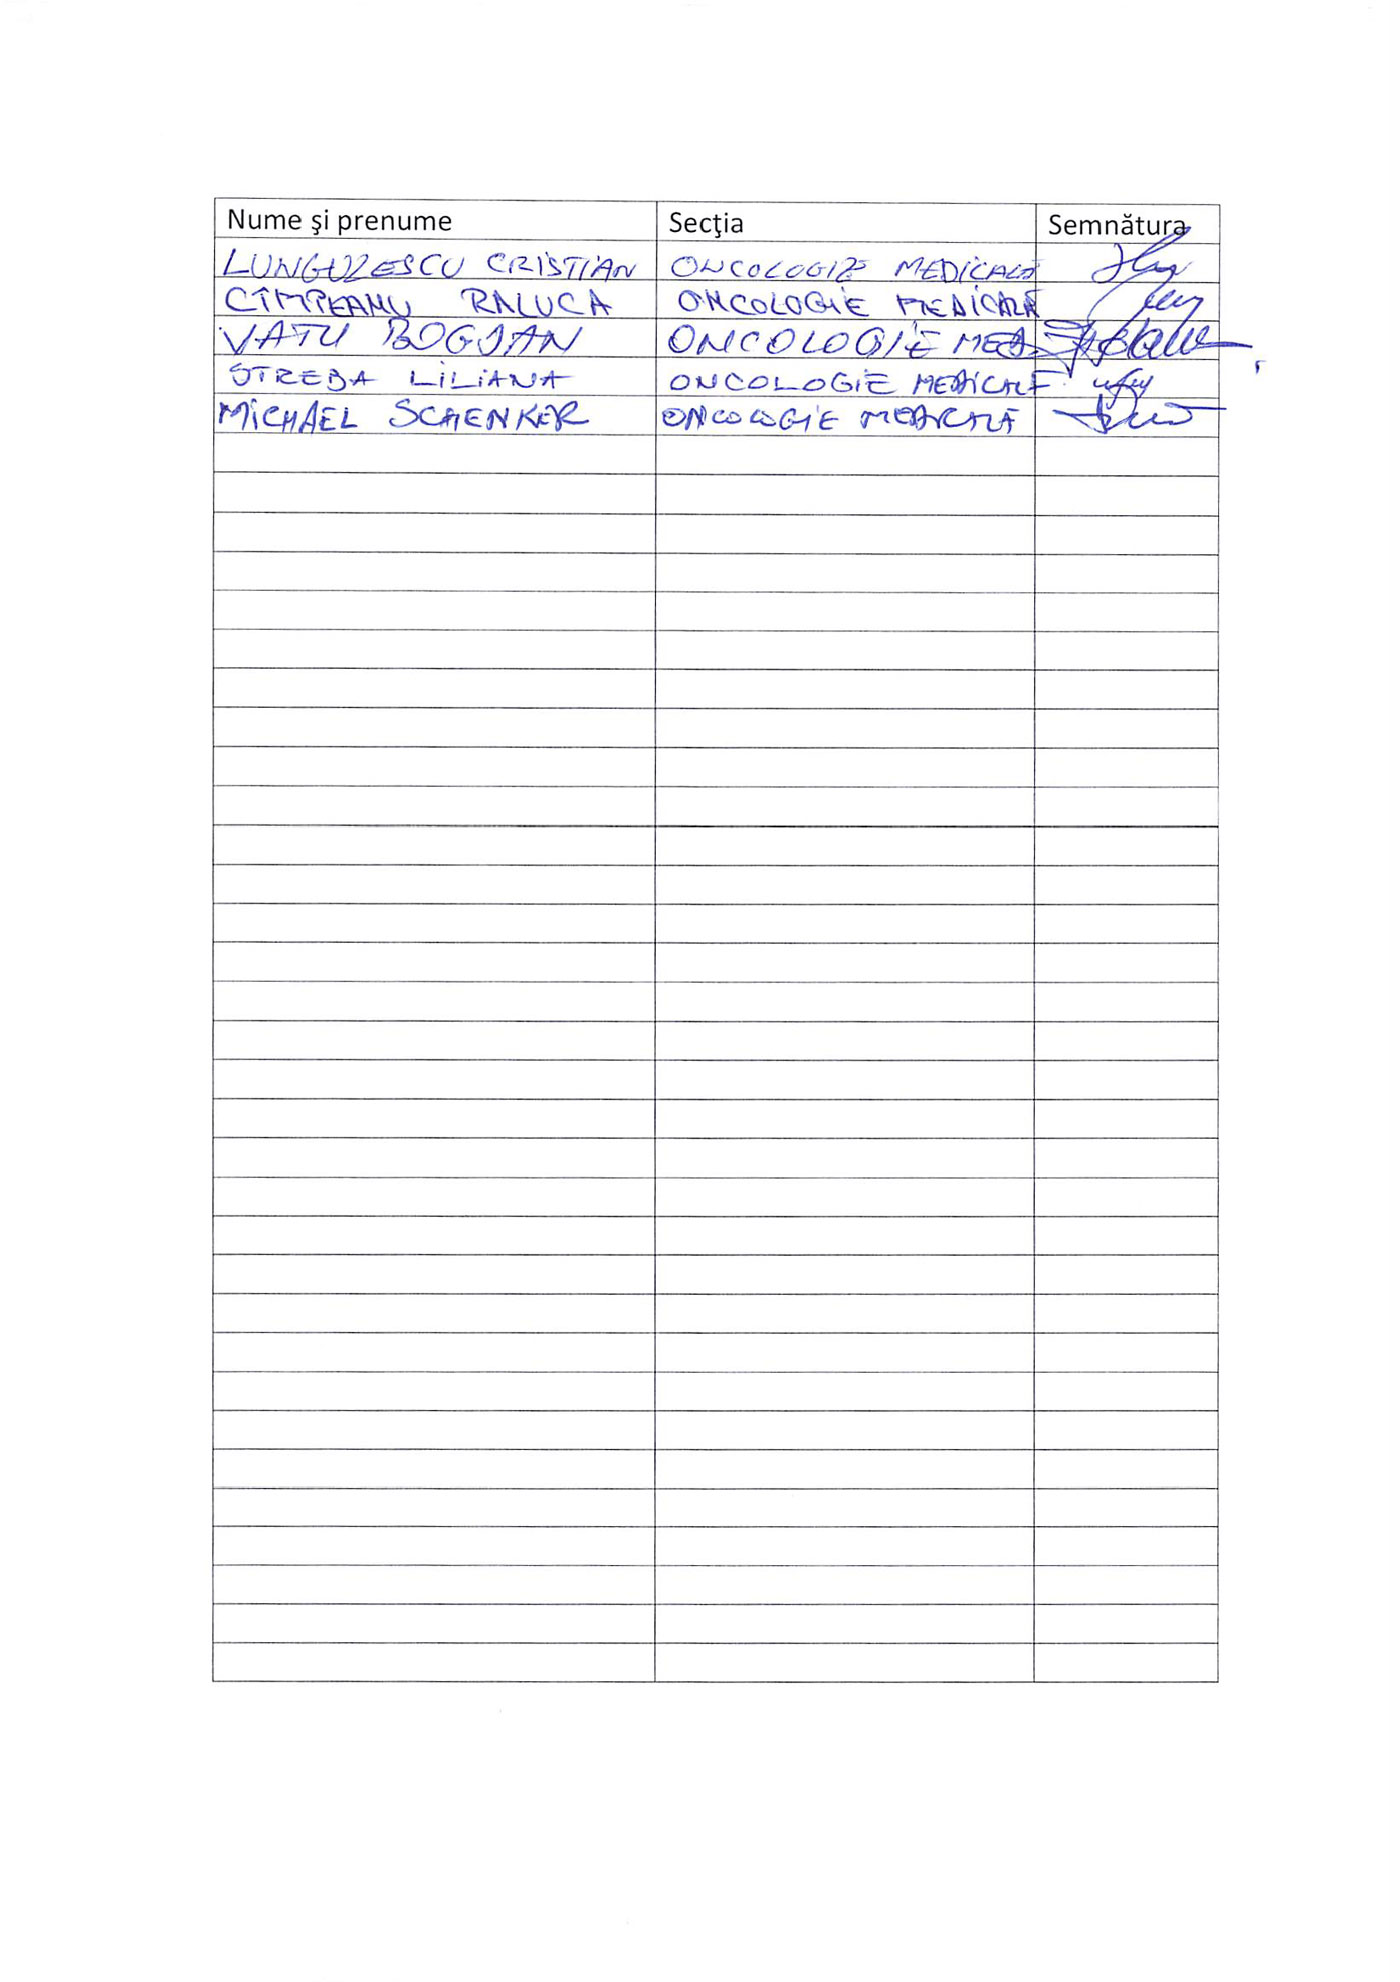 Nume şi prenume Secţia Semnătura
LUNGULESCU CRISTIAN ONCOLOGIE MEDICALĂ
CÎMPEANU RALUCA ONCOLOGIE MEDICALĂ
VATU BOGDAN ONCOLOGIE MED.
STREBA LILIANA ONCOLOGIE MEDICALĂ
MICHAEL SCHENKER ONCOLOGIE MEDICALĂ